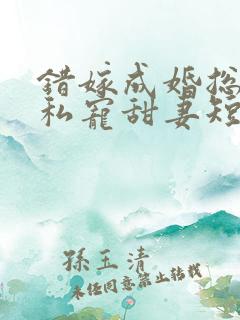 错嫁成婚总
私宠甜妻短
孫玉清
未经同意禁止转载